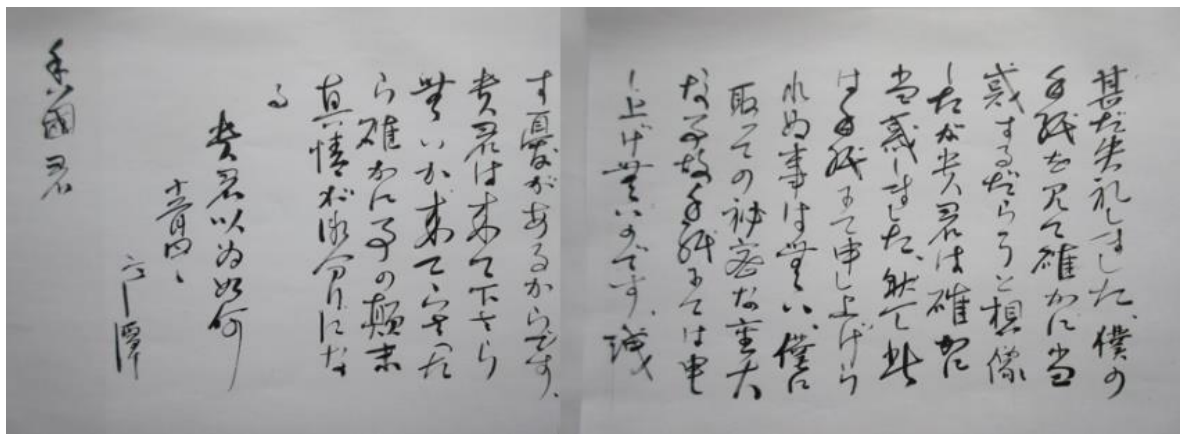 甚だ失礼しました、僕の
手紙を見て確かに当
惑するだらうと想像
したが貴君は確かに
当惑しました、然て此
は手紙にて申し上げら
れぬ事は無い、僕に
取ての秘密な重大
な事故手紙にては申
し上げ無いのです、誠
す憂があるからです、
貴君は来て下さら
無いか来て下さつた
ら確かに事の顛末
真情が御分りにな
る
貴君以為如何
十二月四日
六潭
香國君